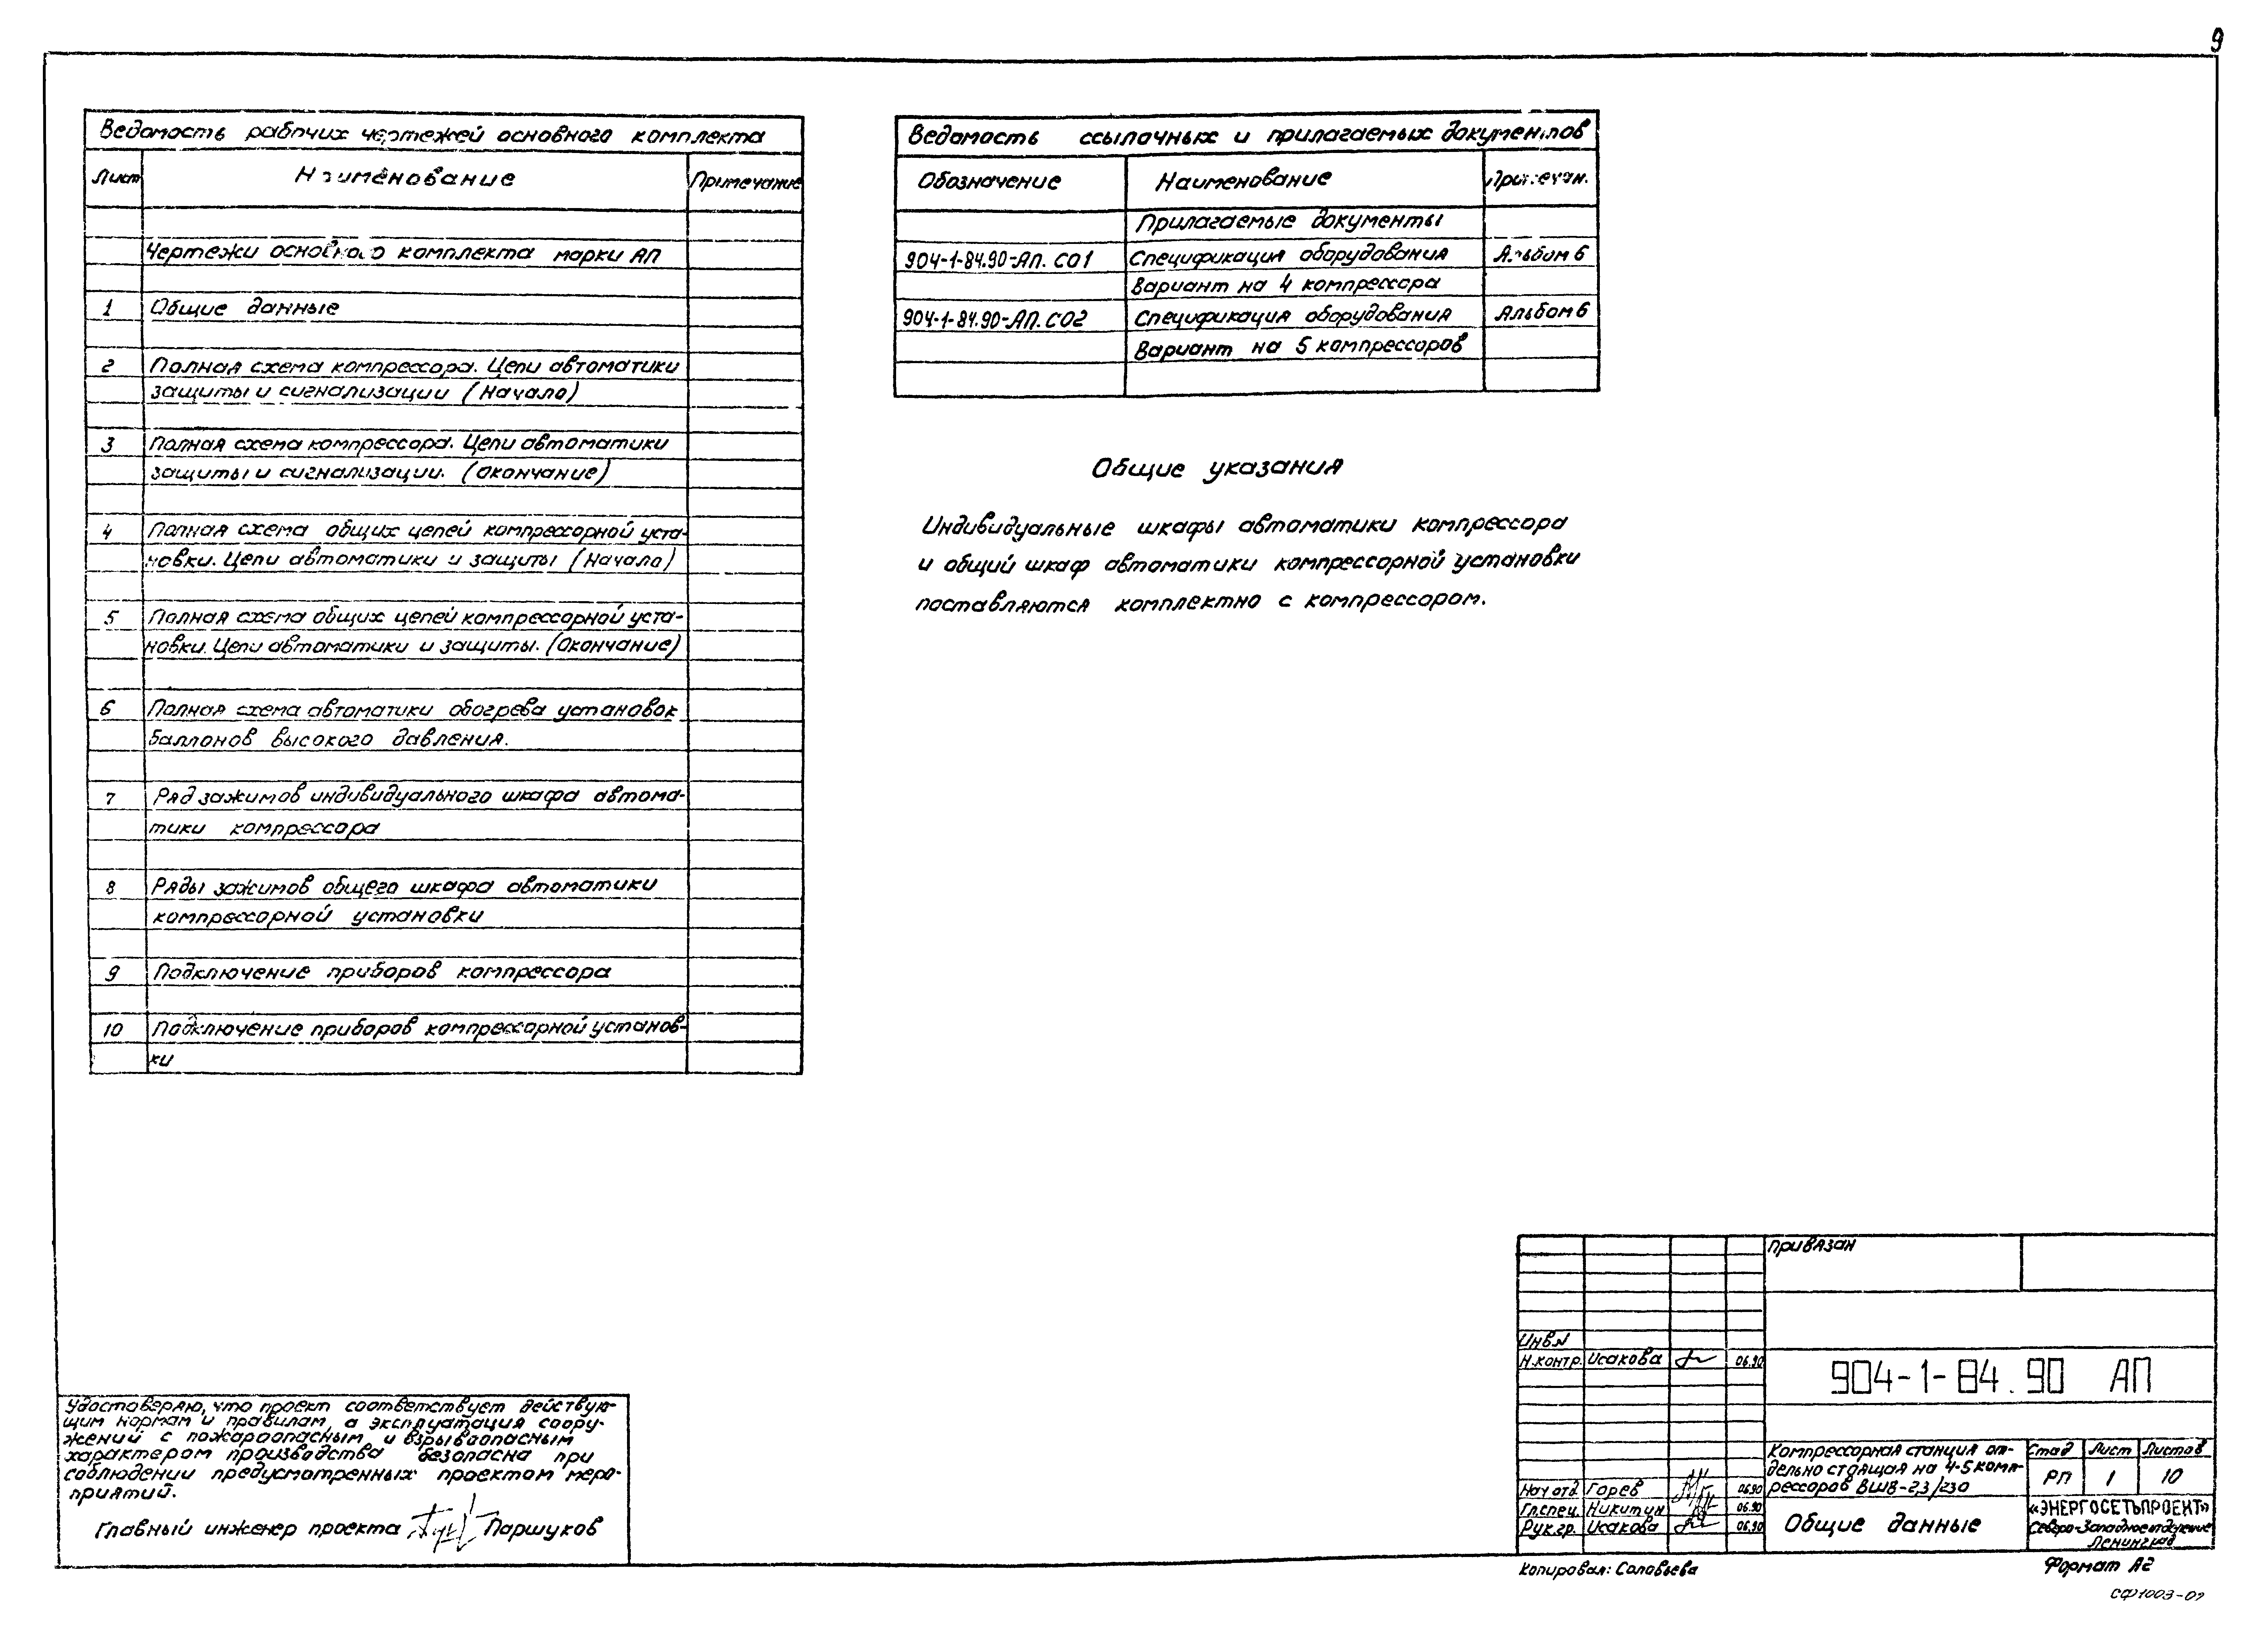 9
Ведомость рабочих чертежей основного комплекта
Лист Наименование Примечание
Чертежи основного комплекта марки АП
1 Общие данные
2 Полная схема компрессора. Цепи автоматики
защиты и сигнализации (Начало)
3 Полная схема компрессора. Цепи автоматики
защиты и сигнализации. (Окончание)
4 Полная схема общих цепей компрессорной уста-
новки. Цепи автоматики и защиты (Начало)
5 Полная схема общих цепей компрессорной уста-
новки. Цепи автоматики и защиты. (Окончание)
6 Полная схема автоматики обогрева установок
баллонов высокого давления.
7 Ряд зажимов индивидуального шкафа автома-
тики компрессора
8 Ряды зажимов общего шкафа автоматики
компрессорной установки
9 Подключение приборов компрессора
10 Подключение приборов компрессорной установ-
ки
Ведомость ссылочных и прилагаемых документов
Обозначение Наименование Примечан.
Прилагаемые документы
904-1-84.90-АП. СО1 Спецификация оборудования Альбом 6
Вариант на 4 компрессора
904-1-84.90-АП. СО2 Спецификация оборудования Альбом 6
Вариант на 5 компрессоров
Общие указания
Индивидуальные шкафы автоматики компрессора
и общий шкаф автоматики компрессорной установки
поставляются комплектно с компрессором.
Удостоверяю, что проект соответствует действую-
щим нормам и правилам, а эксплуатация соору-
жений с пожароопасным и взрывоопасным
характером производства безопасна при
соблюдении предусмотренных проектом меро-
приятий.
Главный инженер проекта Паршуков
Привязан
Инв.N
Н.контр. Исакова 06.90
904-1-84.90 АП
Компрессорная станция от-
дельно стоящая на 4-5 комп-
рессоров ВШВ-2,3/230
Стад Лист Листов
РП 1 10
Нач.отд. Горев 06.90
Гл.спец. Никитин 06.90
Рук.гр. Исакова 06.90
Общие данные
«ЭНЕРГОСЕТЬПРОЕКТ»
Северо-Западное отделение
Ленинград
Копировал: Соловьева
Формат А2